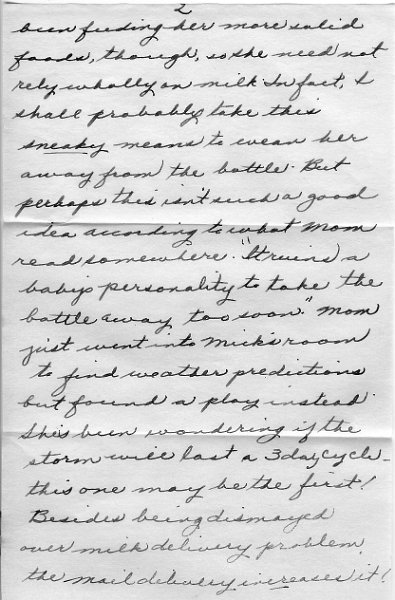 2
been feeding her more solid
foods, though, so she need not
rely wholly on milk. In fact, I
shall probably take this
sneaky means to wean her
away from the bottle. But
perhaps this isn't such a good
idea according to what Mom
read somewhere. "It ruins a
baby's personality to take the
bottle away too soon." Mom
just went into Mick's room
to find weather predictions
but found a play instead.
She's been wondering if the
storm will last a 3 day cycle -
this one may be the first!
Besides being dismayed
over milk delivery problem,
the mail delivery increases it!